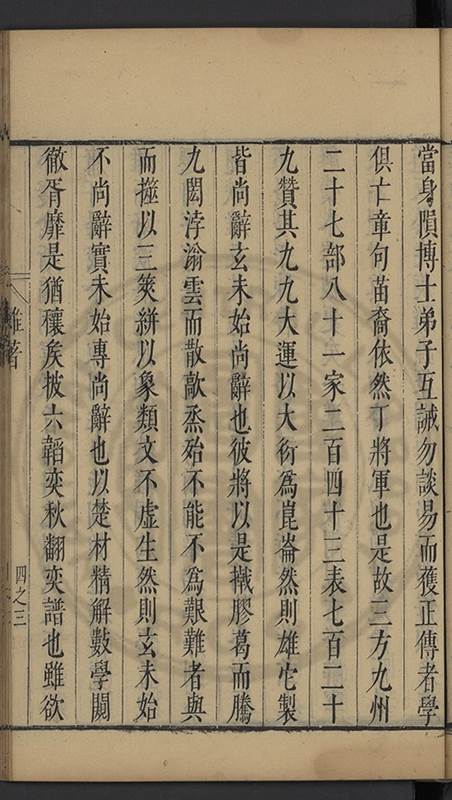 當身隕博士弟子互誡勿談易而獲正傳者學
俱亡章句苗裔依然丁將軍也是故三方九州
二十七部八十一家二百四十三表七百二十
九贊其九九大運以大衍爲崑崙然則雄它製
皆尚辭玄未始尚辭也彼將以是擑膠葛而騰
九閎浡滃雲而散歊烝殆不能不爲艱難者與
而摭以三筴絣以象類文不虚生然則玄未始
不尚辭實未始專尚辭也以楚材精解數學關
徹胥靡是猶穰矦披六韜奕秋翻奕譜也雖欲
雜著
四之三